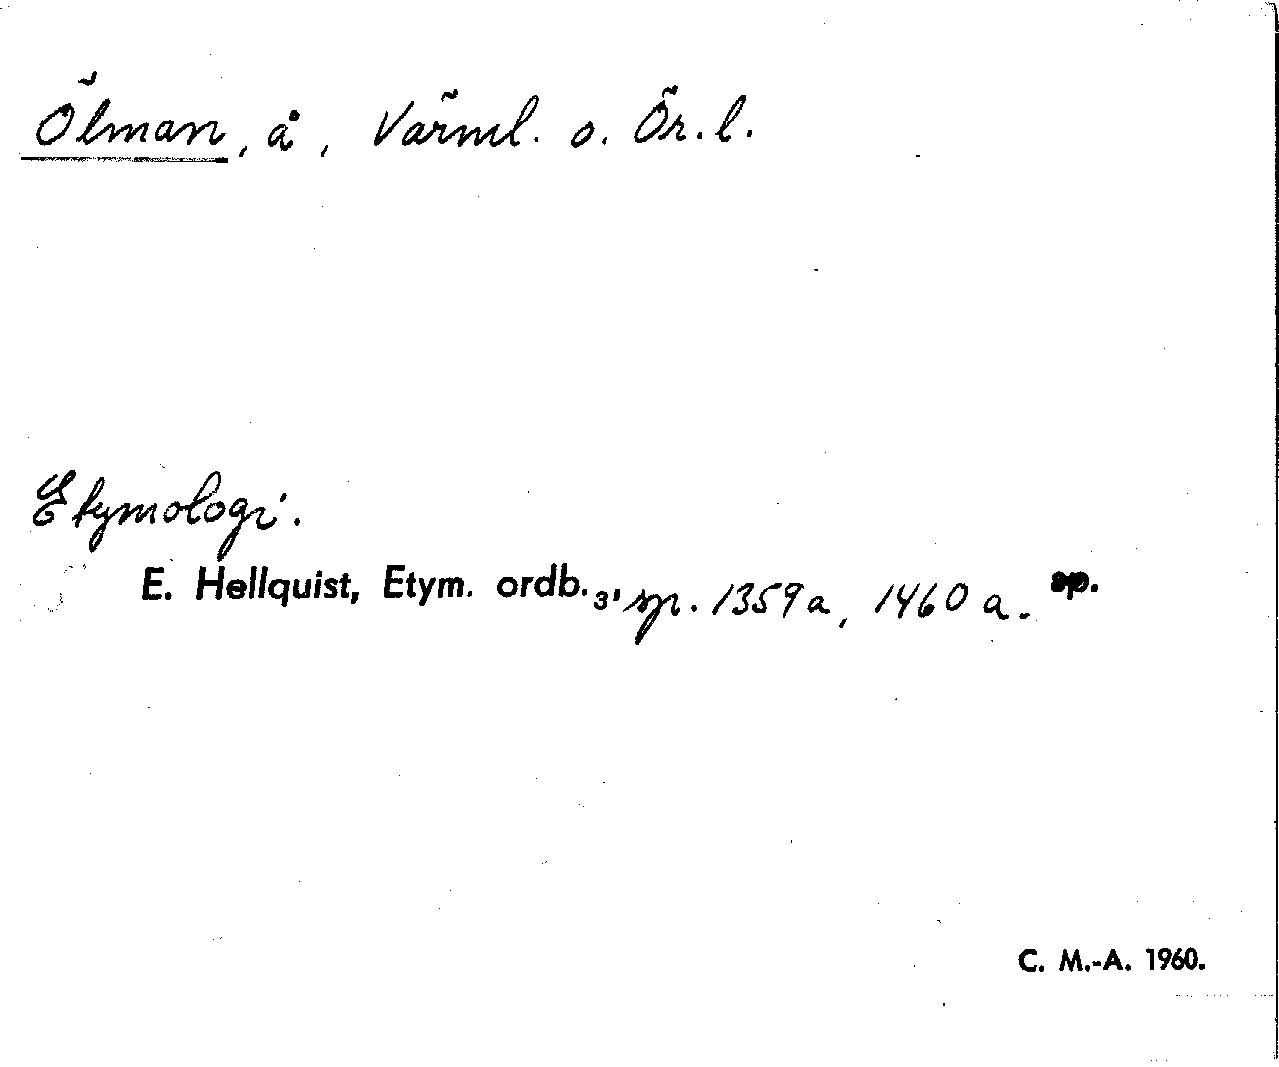 Ölman, å, Värml. o. Ör. l.
Etymologi.
E. Hellquist, Etym. ordb.3, sp. 1359a, 1460a. sp.
C. M.-A. 1960.